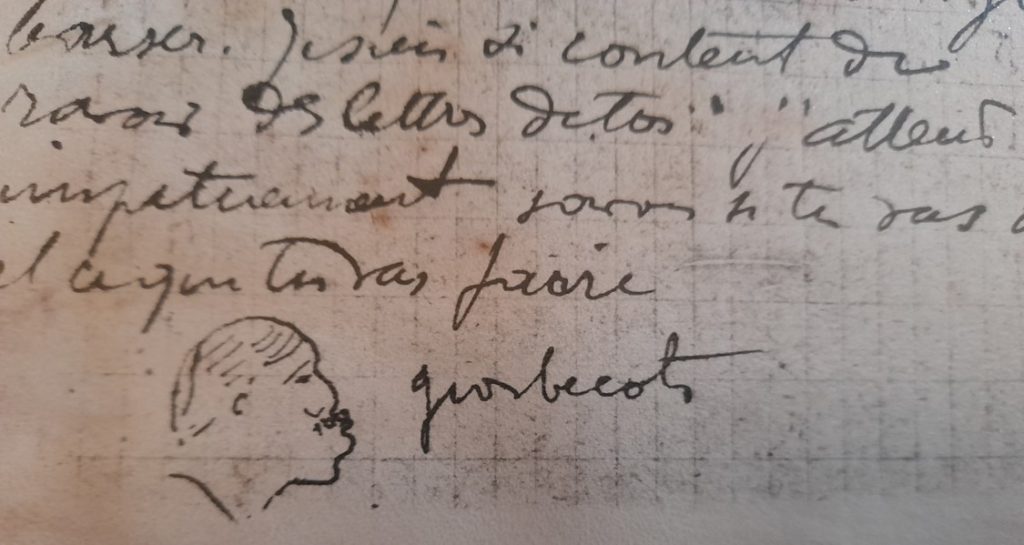 Je suis si content de
ravoir des lettres de toi" j'attend
impatiemment savoir si tu vas
et ce que tu vas faire
gros becots